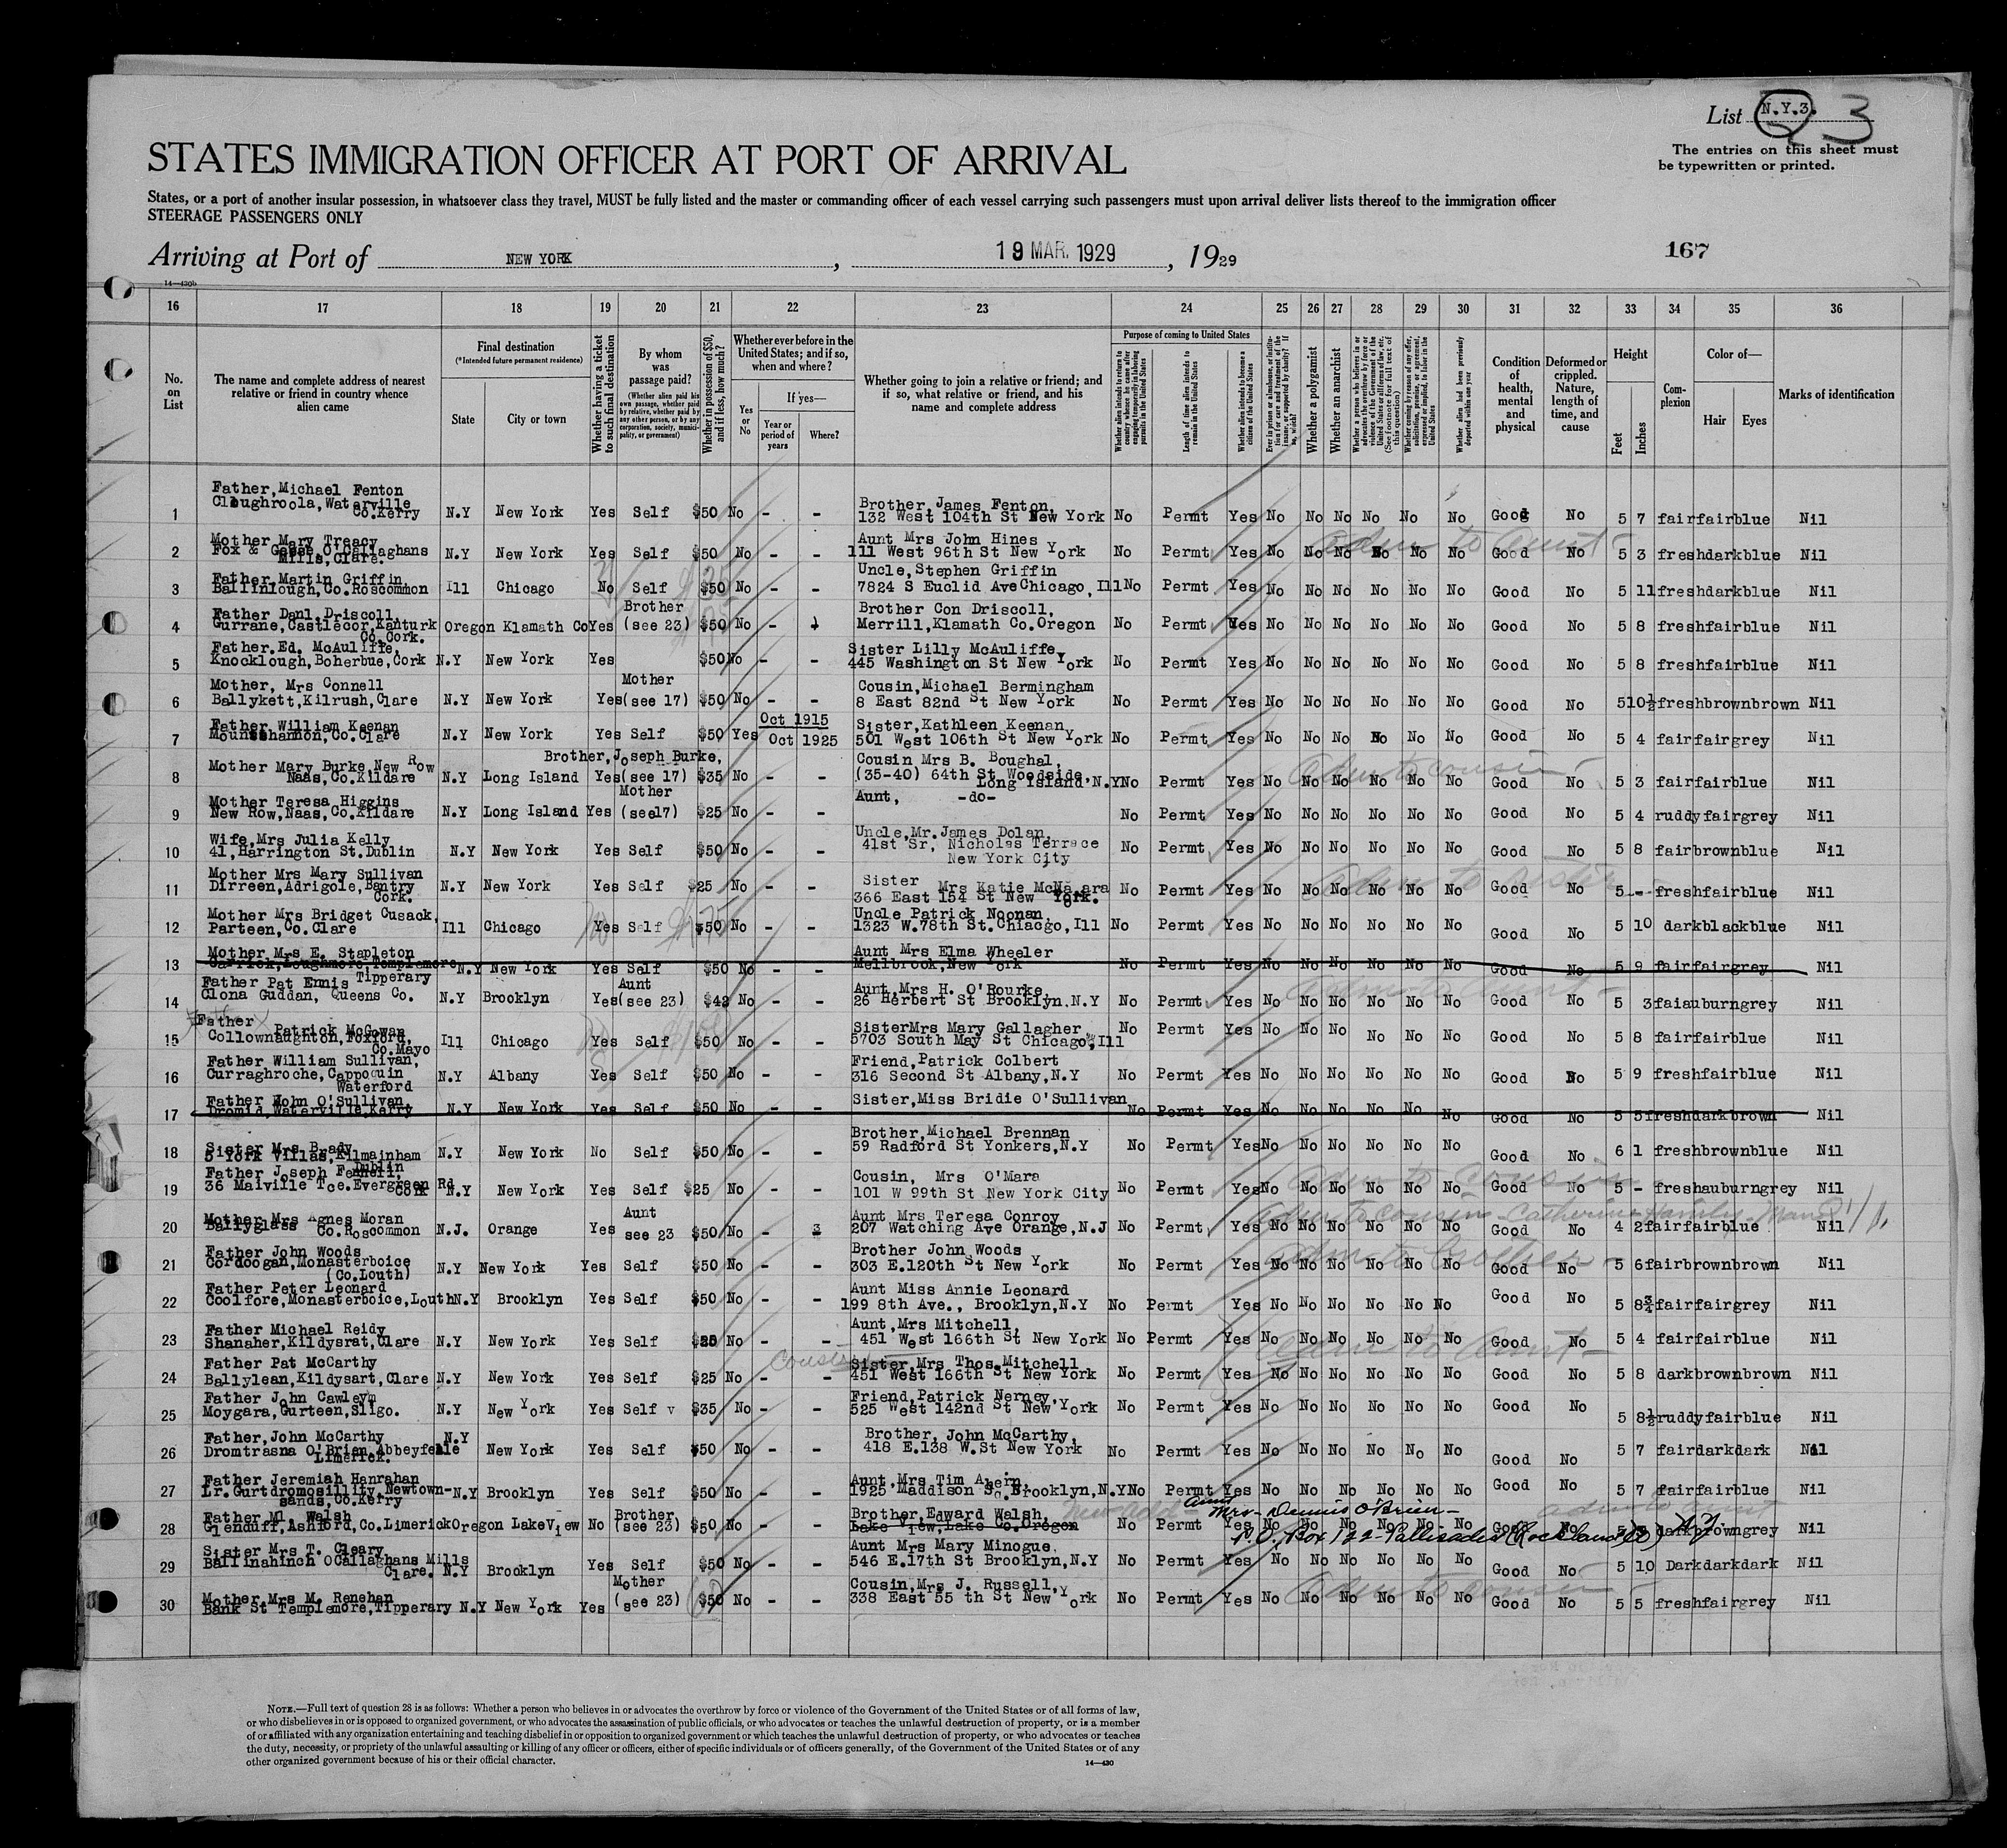 List N.Y.3. 3
The entries on this sheet must
be typewritten or printed.
STATES IMMIGRATION OFFICER AT PORT OF ARRIVAL
States, or a port of another insular possession, in whatsoever class they travel, MUST be fully listed and the master or commanding officer of each vessel carrying such passengers must upon arrival deliver lists thereof to the immigration officer
STEERAGE PASSENGERS ONLY
Arriving at Port of NEW YORK, 19 MAR. 1929, 1929
167
14—430b
16 17 18 19 20 21 22 23 24 25 26 27 28 29 30 31 32 33 34 35 36
No. on List
The name and complete address of nearest relative or friend in country whence alien came
Final destination
(*Intended future permanent residence)
State
City or town
Whether having a ticket to such final destination
By whom was passage paid?
(Whether alien paid his own passage, whether paid by relative, whether paid by any other person, or by any corporation, society, municipality, or government)
Whether in possession of $50, and if less, how much?
Whether ever before in the United States; and if so, when and where?
Yes or No
If yes—
Year or period of years
Where?
Whether going to join a relative or friend; and if so, what relative or friend, and his name and complete address
Purpose of coming to United States
Whether alien intends to return to country whence he came after engaging temporarily in laboring pursuits in the United States
Length of time alien intends to remain in the United States
Whether alien intends to become a citizen of the United States
Whether a polygamist
Whether an anarchist
Condition of health, mental and physical
Deformed or crippled. Nature, length of time, and cause
Height
Feet
Inches
Complexion
Color of—
Hair
Eyes
Marks of identification
1 Father, Michael Fenton Cloughroola, Waterville Co.Kerry N.Y New York Yes Self $50 No - - Brother, James Fenton, 132 West 104th St New York No Permt Yes No No No No No No Good No 5 7 fair fair blue Nil
2 Mother Mary Treacy Fox & Geese O'Callaghans Mills, Clare. N.Y New York Yes Self $50 No - - Aunt Mrs John Hines 111 West 96th St New York No Permt Yes No No No No No No Good No 5 3 fresh dark blue Nil
adm to Aunt -
3 Father Martin Griffin Ballinlough, Co.Roscommon Ill Chicago No Self $50 No - - Uncle, Stephen Griffin 7824 S Euclid Ave Chicago, Ill No Permt Yes No No No No No No Good No 5 11 fresh dark blue Nil
4 Father Danl.Driscoll, Gurrane, Castlecor, Kanturk Co.Cork. Oregon Klamath Co Yes Brother (see 23) $50 No - Brother Con Driscoll, Merrill, Klamath Co.Oregon No Permt Yes No No No No No No Good No 5 8 fresh fair blue Nil
5 Father.Ed. McAuliffe, Knocklough, Boherbue, Cork N.Y New York Yes $50 No - - Sister Lilly McAuliffe, 445 Washington St New York No Permt Yes No No No No No No Good No 5 8 fresh fair blue Nil
6 Mother, Mrs Connell Ballykett, Kilrush, Clare N.Y New York Yes Mother (see 17) $50 No - - Cousin, Michael Bermingham 8 East 82nd St New York No Permt Yes No No No No No No Good No 5 10½ fresh brown brown Nil
7 Father William Keenan Mountshannon, Co.Clare N.Y New York Yes Self $50 Yes Oct 1915 Oct 1925 Sister, Kathleen Keenan, 501 West 106th St New York No Permt Yes No No No No No No Good No 5 4 fair fair grey Nil
8 Mother Mary Burke, New Row Naas, Co.Kildare N.Y Long Island Yes Brother, Joseph Burke, (see 17) $35 No - - Cousin Mrs B. Boughal, (35-40) 64th St Woodside, Long Island, N.Y No Permt Yes No No No No No No Good No 5 3 fair fair blue Nil
adm to cousin -
9 Mother Teresa Higgins New Row, Naas, Co.Kildare N.Y Long Island Yes Mother (see17) $25 No - - Aunt, -do- No Permt Yes No No No No No No Good No 5 4 ruddy fair grey Nil
10 Wife, Mrs Julia Kelly 41, Harrington St.Dublin N.Y New York Yes Self $50 No - - Uncle, Mr. James Dolan, 41st Sr, Nicholas Terrace New York City No Permt Yes No No No No No No Good No 5 8 fair brown blue Nil
11 Mother Mrs Mary Sullivan Dirreen, Adrigole, Bantry Cork. N.Y New York Yes Self $25 No - - Sister Mrs Katie McNamara 366 East 154 St New York. No Permt Yes No No No No No No Good No 5 - fresh fair blue Nil
adm to sister
12 Mother Mrs Bridget Cusack, Parteen, Co.Clare Ill Chicago Yes Self $50 No - - Uncle Patrick Noonan, 1323 W.78th St.Chiacgo, Ill No Permt Yes No No No No No No Good No 5 10 dark black blue Nil
13 Mother Mrs E. Stapleton Carrick, Loughmore, Templemore Tipperary N.Y New York Yes Self $50 No - - Aunt Mrs Elma Wheeler Mellbrook, New York No Permt Yes No No No No No No Good No 5 9 fair fair grey Nil
14 Father Pat Ennis Clona Guddan, Queens Co. N.Y Brooklyn Yes Aunt (see 23) $42 No - - Aunt, Mrs H. O'Rourke, 26 Herbert St Brooklyn, N.Y No Permt Yes No No No No No No Good No 5 3 fair auburn grey Nil
adm to Aunt -
15 Father Patrick McGowan Collownaughton, Foxford, Co.Mayo Ill Chicago Yes Self $50 No - - Sister Mrs Mary Gallagher 5703 South May St Chicago, Ill No Permt Yes No No No No No No Good No 5 8 fair fair blue Nil
16 Father William Sullivan, Curraghroche, Cappoquin Waterford N.Y Albany Yes Self $50 No - - Friend, Patrick Colbert 316 Second St Albany, N.Y No Permt Yes No No No No No No Good No 5 9 fresh fair blue Nil
17 Father John O'Sullivan, Dromid, Waterville, Kerry N.Y New York Yes Self $50 No - - Sister, Miss Bridie O'Sullivan No Permt Yes No No No No No No Good No 5 5 fresh dark brown Nil
18 Sister Mrs Brady 5 York Villas, Kilmainham Dublin N.Y New York No Self $50 No - - Brother, Michael Brennan 59 Radford St Yonkers, N.Y No Permt Yes No No No No No No Good No 6 1 fresh brown blue Nil
19 Father Joseph Fennell, 36 Malville Tce.Evergreen Rd Cork N.Y New York Yes Self $25 No - - Cousin, Mrs O'Mara 101 W 99th St New York City No Permt Yes No No No No No No Good No 5 - fresh auburn grey Nil
adm to cousin
20 Mother Mrs Agnes Moran Ballyglass Co.Roscommon N.J. Orange Yes Aunt see 23 $50 No - 3 Aunt Mrs Teresa Conroy 207 Watching Ave Orange, N.J No Permt Yes No No No No No No Good No 4 2 fair fair blue Nil
adm to cousin Catherine
21 Father John Woods Cordoogan, Monasterboice (Co.Louth) N.Y New York Yes Self $50 No - - Brother John Woods 303 E.120th St New York No Permt Yes No No No No No No Good No 5 6 fair brown brown Nil
adm to brother -
22 Father Peter Leonard Coolfore, Monasterboice, Louth N.Y Brooklyn Yes Self $50 No - - Aunt Miss Annie Leonard 199 8th Ave., Brooklyn, N.Y No Permt Yes No No No No No No Good No 5 8¾ fair fair grey Nil
23 Father Michael Reidy Shanaher, Kildysrat, Clare N.Y New York Yes Self No - - Aunt, Mrs Mitchell, 451 West 166th St New York No Permt Yes No No No No No No Good No 5 4 fair fair blue Nil
adm to Aunt -
24 Father Pat McCarthy Ballylean, Kildysart, Clare N.Y New York Yes Self $25 No - - Cousin Sister, Mrs Thos.Mitchell 451 West 166th St New York No Permt Yes No No No No No No Good No 5 8 dark brown brown Nil
25 Father John Cawleym Moygara, Gurteen, Sligo. N.Y New York Yes Self v $35 No - - Friend, Patrick Nerney, 525 West 142nd St New York No Permt Yes No No No No No No Good No 5 8½ ruddy fair blue Nil
26 Father, John McCarthy Dromtrasna O'Brien, Abbeyfeale Limerick. N.Y New York Yes Self $50 No - - Brother, John McCarthy, 418 E.138 W.St New York No Permt Yes No No No No No No Good No 5 7 fair dark dark Nil
27 Father Jeremiah Hanrahan Lr.Gurtdromosillity, Newtown-sands, Co.Kerry N.Y Brooklyn Yes Self $50 No - - Aunt, Mrs Tim Ahern, 1925 Maddison St. Brooklyn, N.Y No Permt Yes No No No No No No Good No 5 7 fair fair blue Nil
28 Father Ml. Walsh Glenduff, Ashford, Co.Limerick Oregon LakeView No Brother (see 23) $50 No - - Brother, Edward Walsh, Lake View, Lake Co.Oregon No Permt Yes No No No No No No Good No 5 dark brown grey Nil
New Add - Aunt Mrs - Dennis O'Brien -
P.O. Box 122 - Pallisades (Rockland Co) N.Y.
adm to aunt
29 Sister Mrs T. Cleary, Ballinahinch OCallaghans Mills Clare. N.Y Brooklyn Yes Self $50 No - - Aunt Mrs Mary Minogue. 546 E.17th St Brooklyn, N.Y No Permt Yes No No No No No No Good No 5 10 Dark dark dark Nil
30 Mother Mrs M. Renehan Bank St Templemore, Tipperary N.Y New York Yes Mother (see 23) $50 No - - Cousin, Mrs J. Russell, 338 East 55 th St New York No Permt Yes No No No No No No Good No 5 5 fresh fair grey Nil
adm to cousin -
NOTE.—Full text of question 28 is as follows: Whether a person who believes in or advocates the overthrow by force or violence of the Government of the United States or of all forms of law,
or who disbelieves in or is opposed to organized government, or who advocates the assassination of public officials, or who advocates or teaches the unlawful destruction of property, or is a member
of or affiliated with any organization entertaining and teaching disbelief in or opposition to organized government or which teaches the unlawful destruction of property, or who advocates or teaches
the duty, necessity, or propriety of the unlawful assaulting or killing of any officer or officers, either of specific individuals or of officers generally, of the Government of the United States or of any
other organized government because of his or their official character.
14—430